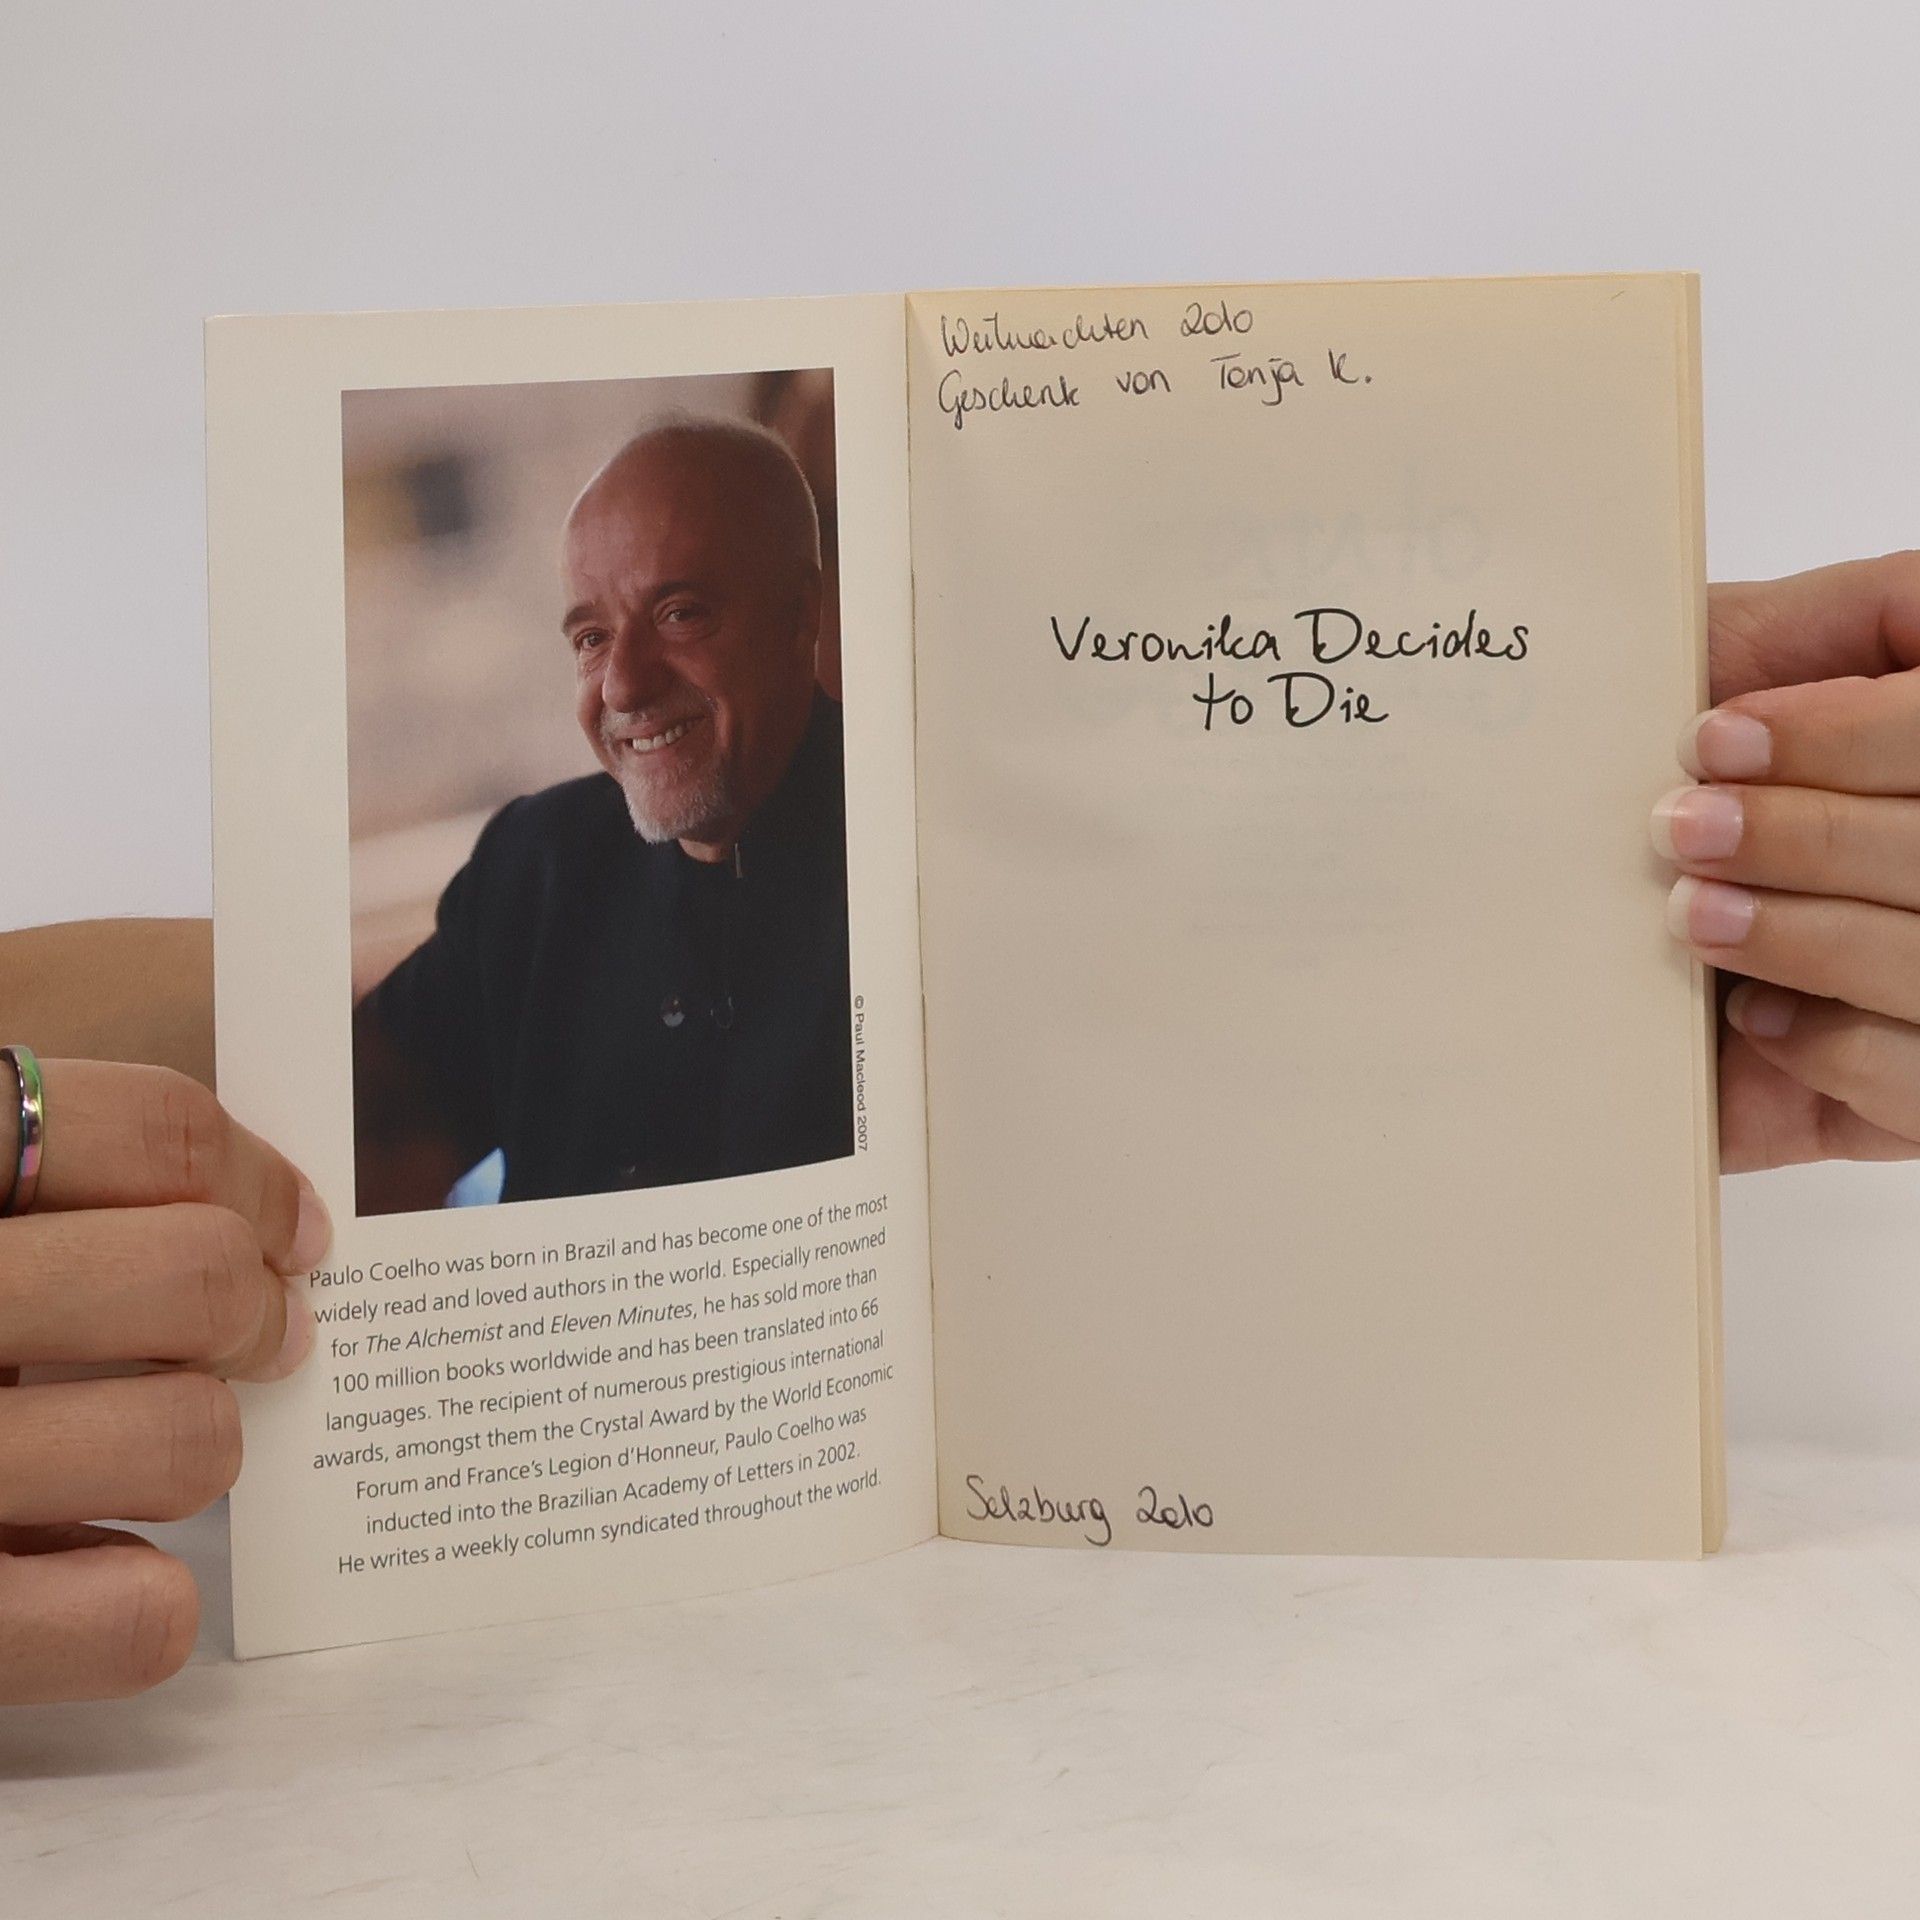 © Paul Macleod 2007
Paulo Coelho was born in Brazil and has become one of the most
widely read and loved authors in the world. Especially renowned
for The Alchemist and Eleven Minutes, he has sold more than
100 million books worldwide and has been translated into 66
languages. The recipient of numerous prestigious international
awards, amongst them the Crystal Award by the World Economic
Forum and France's Legion d'Honneur, Paulo Coelho was
inducted into the Brazilian Academy of Letters in 2002.
He writes a weekly column syndicated throughout the world.
Weihnachten 2010
Geschenk von Tanja K.
Veronika Decides
to Die
Salzburg 2010